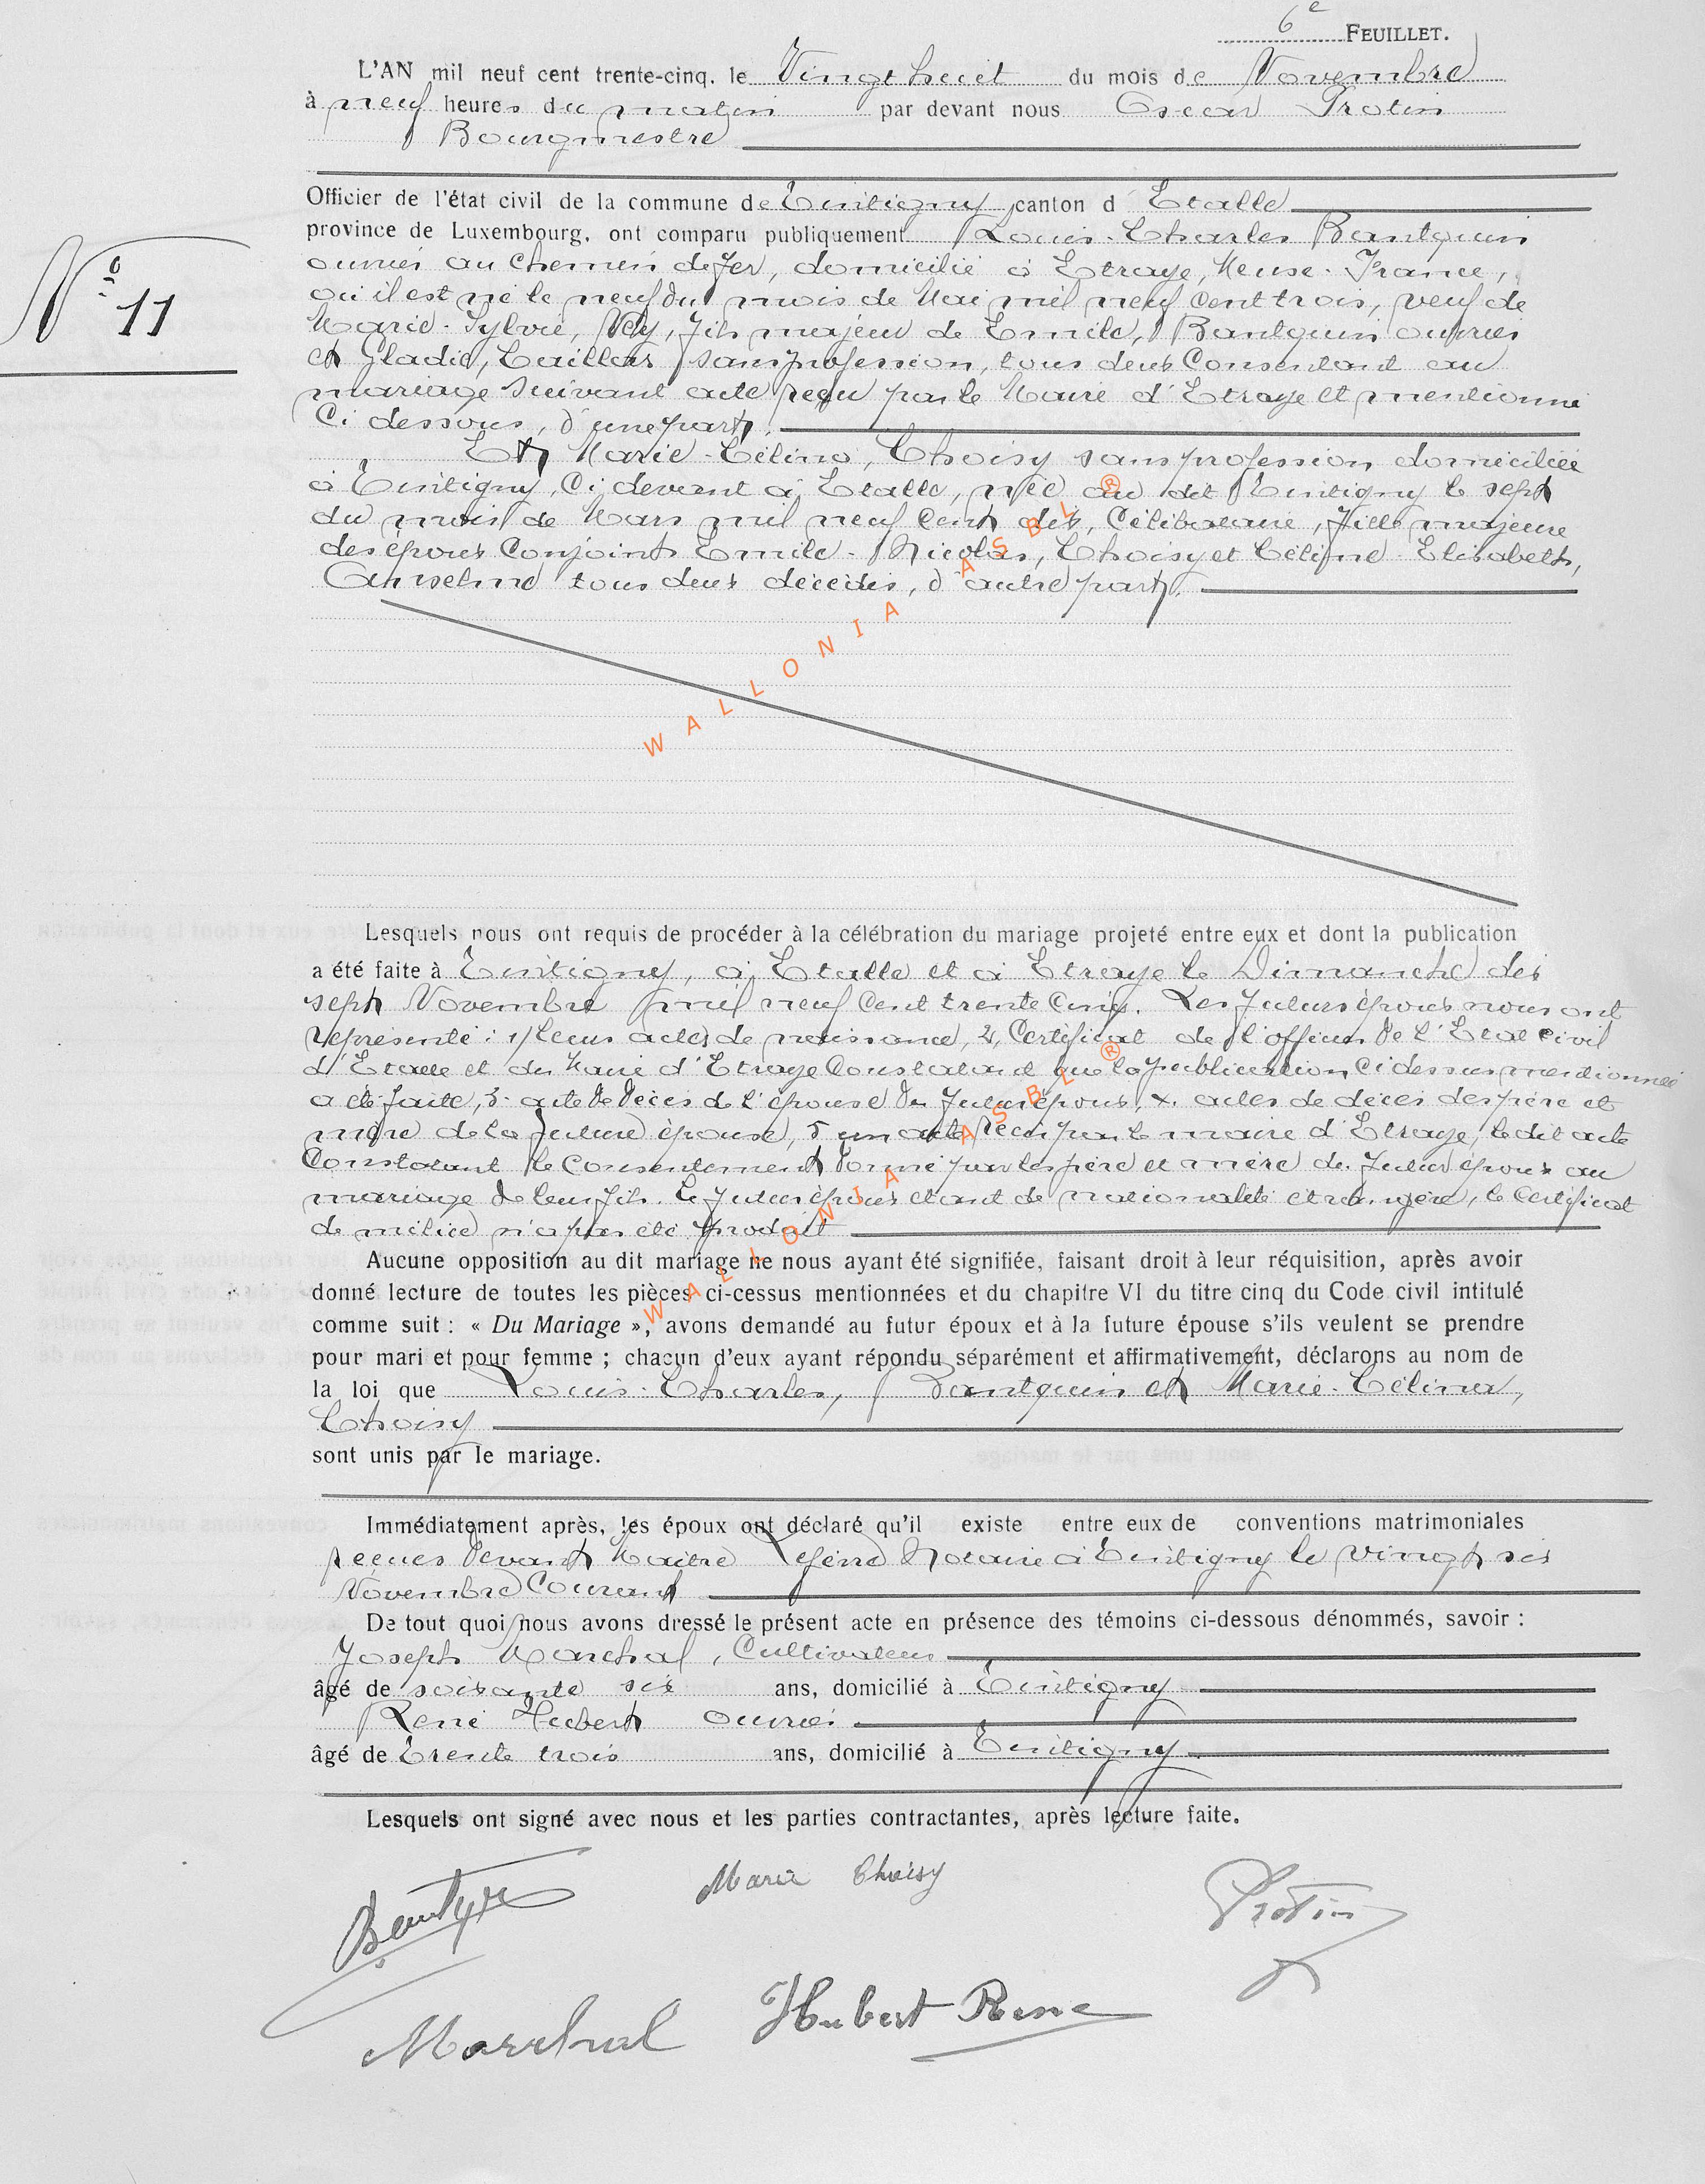 6e FEUILLET.
L'AN mil neuf cent trente-cinq, le Vingt huit du mois de Novembre
à neuf heures du matin par devant nous Oscar Protin
Bourgmestre
Officier de l'état civil de la commune de Tintigny canton d Etalle
province de Luxembourg, ont comparu publiquement Louis-Charles Bantquin
N° 11
ouvrier au chemin de fer, domicilié à Etraye, Meuse-France,
où il est né le neuf du mois de Mai mil neuf cent trois, veuf de
Marie-Sylvie, fils majeur de Emile, Bantquin ouvrier
et sans profession, tous deux consentant au
mariage suivant acte reçu par le Maire d'Etraye et mentionné
Ci dessous, d'une part.
Et Marie-Célina, Choisy sans profession domiciliée
à Tintigny, Ci devant à Etalle, née au dit Tintigny le sept
du mois de Mars mil neuf cent dix, Célibataire, fille majeure
des époux Conjoints Emile-Nicolas, Choisy et Céline-Elisabeth,
Anselme tous deux décédés, d'autre part.
WALLONIA ASBL ®
Lesquels nous ont requis de procéder à la célébration du mariage projeté entre eux et dont la publication
a été faite à Tintigny, à Etalle et à Etraye le Dimanche dix
sept Novembre mil neuf cent trente cinq. Les futurs époux nous ont
représenté : 1, leurs actes de naissance, 2, Certificat de l'officier de l'Etat civil
d'Etalle et du Maire d'Etraye Constatant que la publication Ci dessus mentionnée
a été faite, 3. acte de décès de l'épouse du futur époux, 4. actes de décès des père et
mère de la future épouse, 5 un acte reçu par le maire d'Etraye, le dit acte
Constatant le Consentement donné par les père et mère du futur époux au
mariage de leur fils. Le futur époux étant de nationalité étrangère, le Certificat
de milice n'a pas été produit
WALLONIA ASBL ®
Aucune opposition au dit mariage ne nous ayant été signifiée, faisant droit à leur réquisition, après avoir
donné lecture de toutes les pièces ci-cessus mentionnées et du chapitre VI du titre cinq du Code civil intitulé
comme suit : « Du Mariage », avons demandé au futur époux et à la future épouse s'ils veulent se prendre
pour mari et pour femme ; chacun d'eux ayant répondu séparément et affirmativement, déclarons au nom de
la loi que Louis-Charles, Bantquin et Marie-Célina,
Choisy
sont unis par le mariage.
Immédiatement après, les époux ont déclaré qu'il existe entre eux de conventions matrimoniales
reçues devant Maître Notaire à Tintigny le vingt six
Novembre Courant
De tout quoi nous avons dressé le présent acte en présence des témoins ci-dessous dénommés, savoir :
Joseph Marchal, Cultivateur
âgé de soixante six ans, domicilié à Tintigny
René Hubert ouvrier
âgé de Trente trois ans, domicilié à Tintigny
Lesquels ont signé avec nous et les parties contractantes, après lecture faite.
Marie Choisy
Protin
Marchal
Hubert Rene